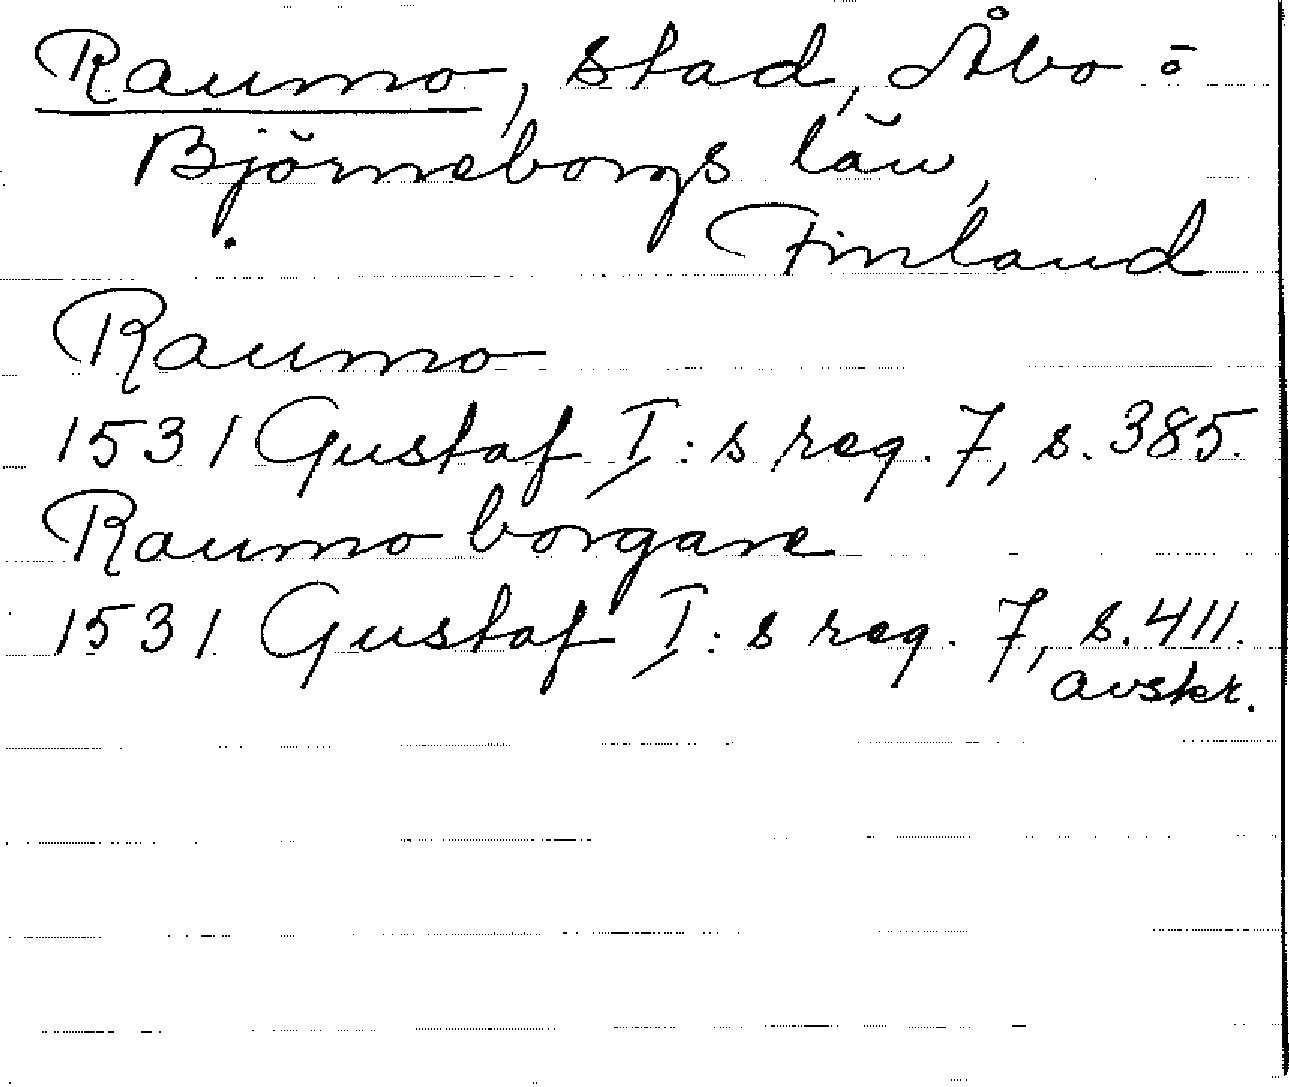 Raumo, stad, Åbo o
Björneborgs län,
Finland
Raumo
1531 Gustaf I:s reg. 7, s. 385.
Raumo borgare
1531 Gustaf I:s reg. 7, s. 411.
avskr.